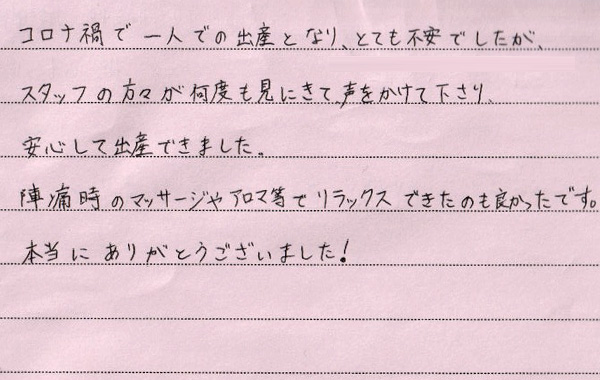 コロナ禍で一人での出産となり、とても不安でしたが、
スタッフの方々が何度も見にきて、声をかけて下さり、
安心して出産できました。
陣痛時のマッサージやアロマ等でリラックスできたのも良かったです。
本当にありがとうございました!